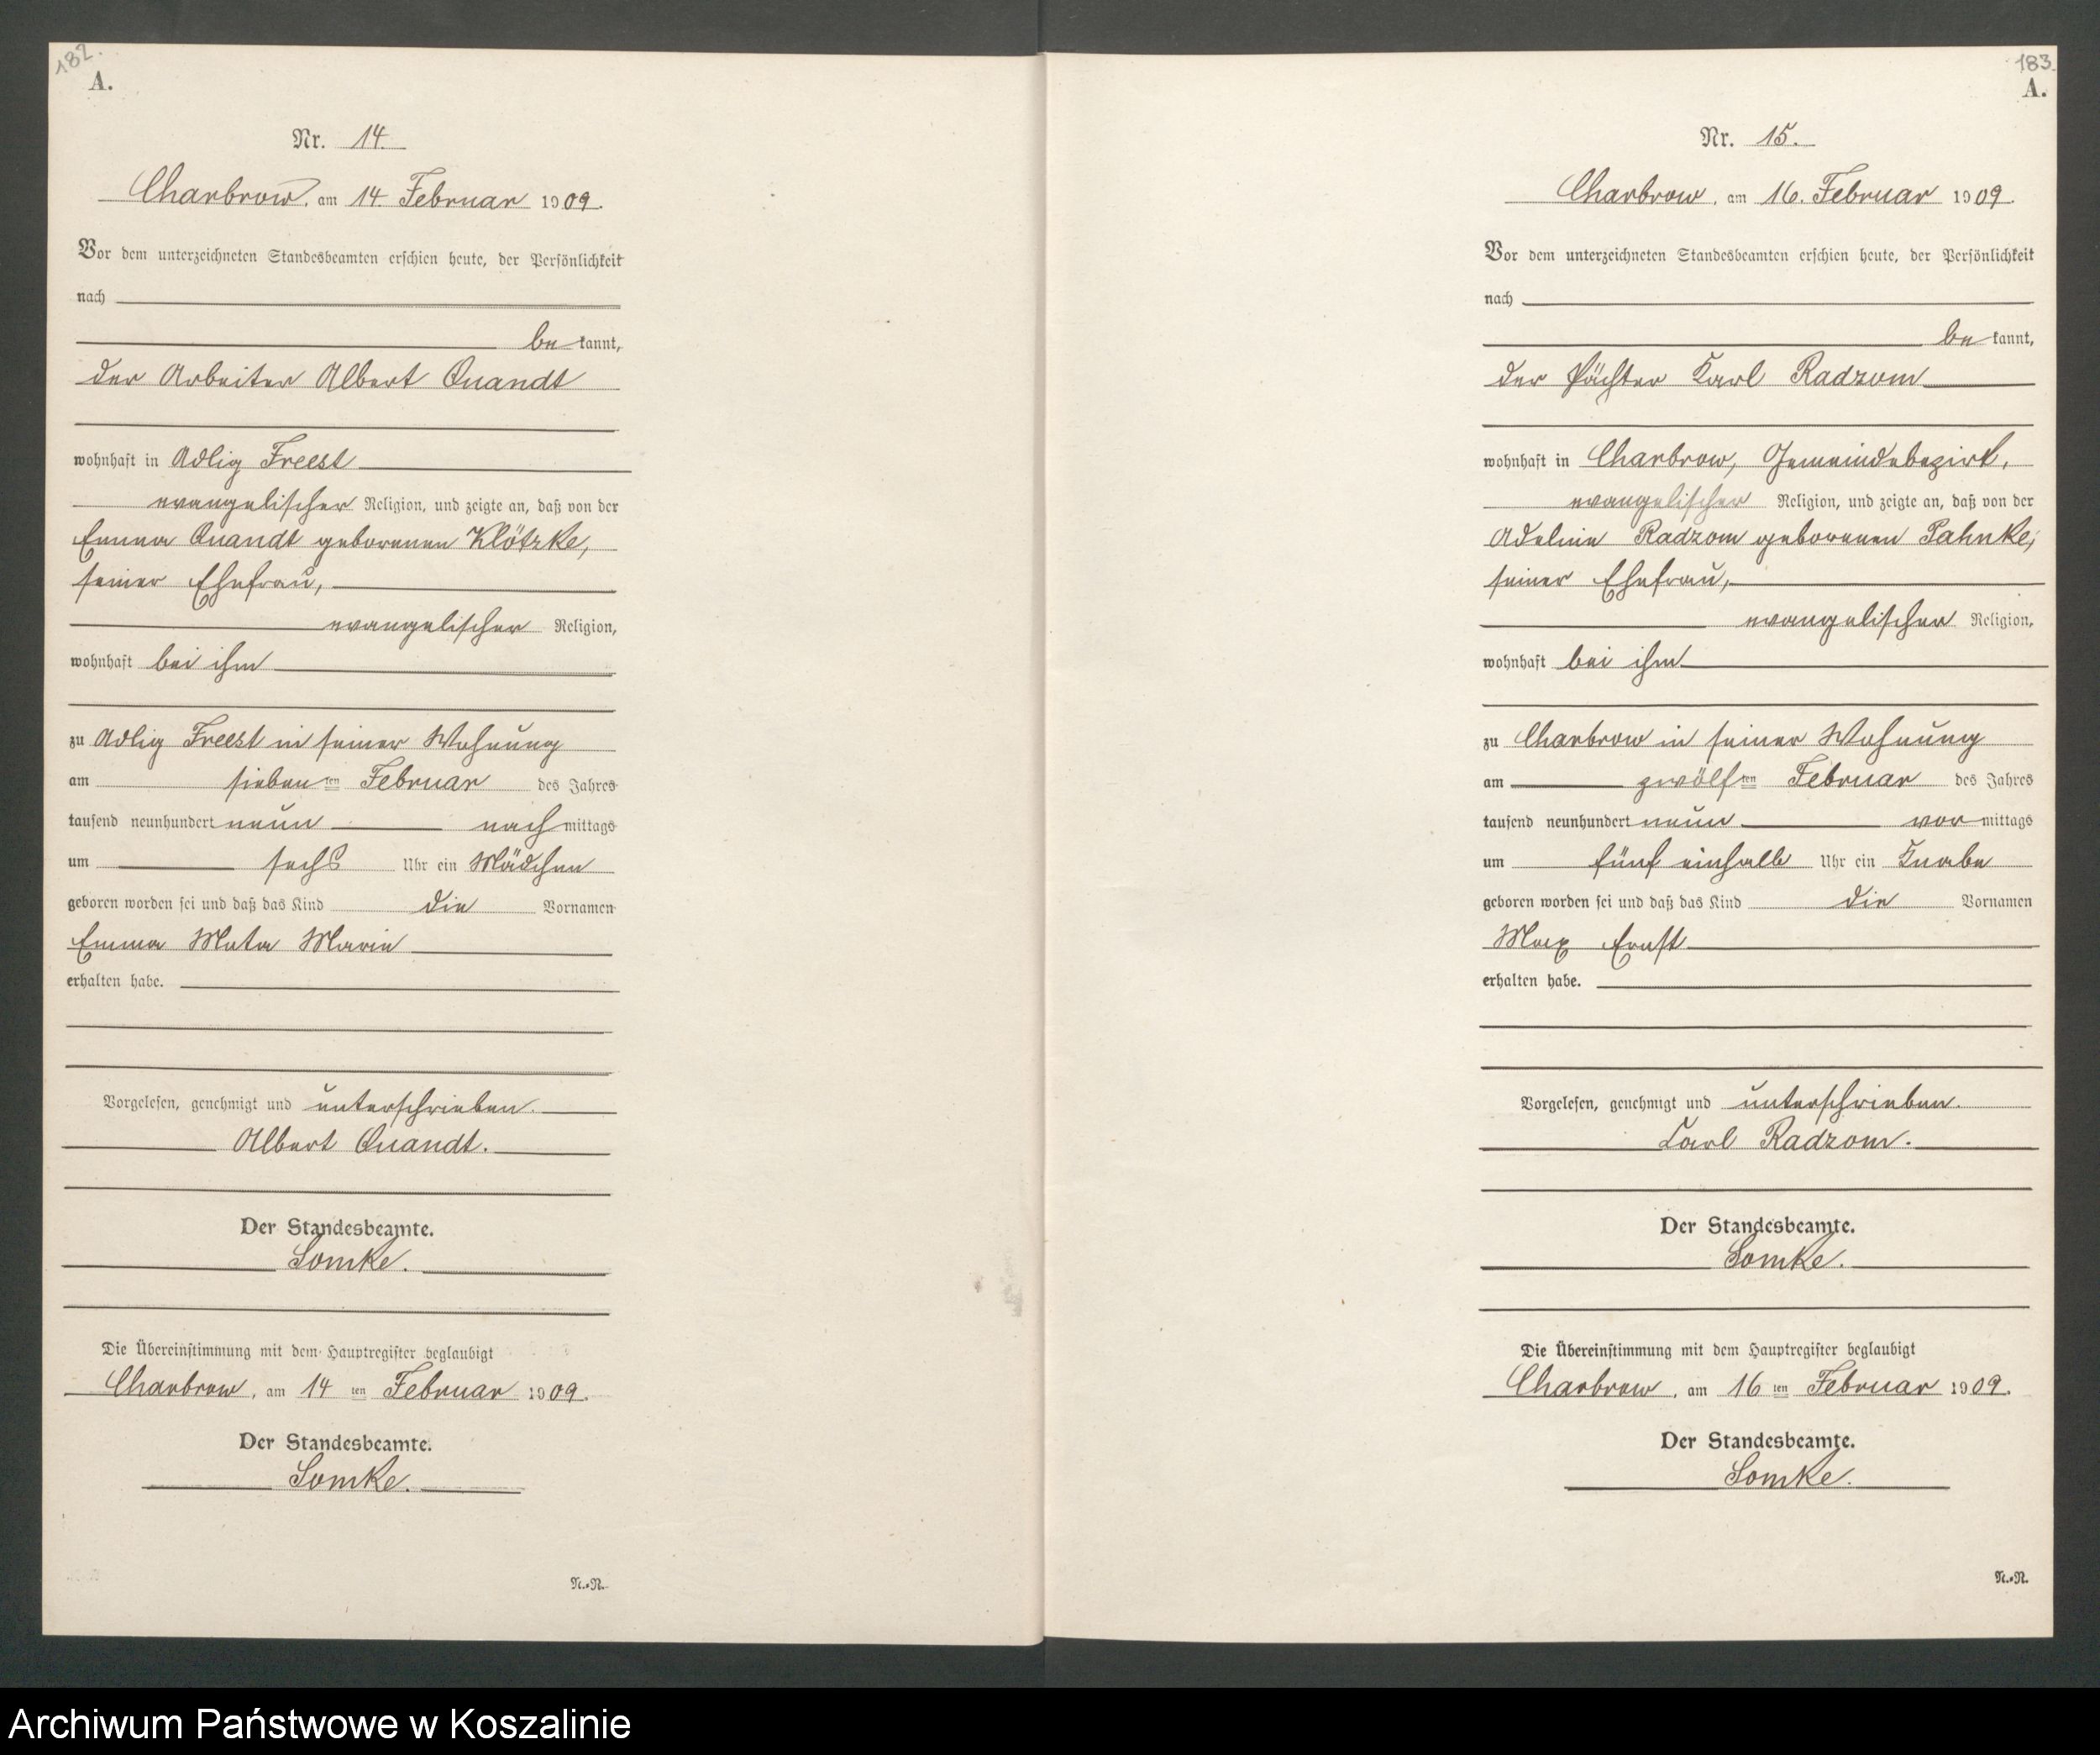 182.
A.
Nr. 14.
Charbrow, am 14. Februar 1909.
Vor dem unterzeichneten Standesbeamten erschien heute, der Persönlichkeit
nach
be kannt,
der Arbeiter Albert Quandt
wohnhaft in Adlig Freest
evangelischer Religion, und zeigte an, daß von der
Emma Quandt geborenen Klötzke,
seiner Ehefrau,
evangelischer Religion,
wohnhaft bei ihm
zu Adlig Freest in seiner Wohnung
am sieben ten Februar des Jahres
tausend neunhundert neun nach mittags
um sechs Uhr ein Mädchen
geboren worden sei und daß das Kind die Vornamen
Emma Meta Marie
erhalten habe.
Vorgelesen, genehmigt und unterschrieben.
Albert Quandt.
Der Standesbeamte.
Somke.
Die Übereinstimmung mit dem Hauptregister beglaubigt
Charbrow, am 14 ten Februar 1909.
Der Standesbeamte.
Somke.
N.=R.
183.
A.
Nr. 15.
Charbrow, am 16. Februar 1909.
Vor dem unterzeichneten Standesbeamten erschien heute, der Persönlichkeit
nach
be kannt,
der Pächter Karl Radzom
wohnhaft in Charbrow, Gemeindebezirk,
evangelischer Religion, und zeigte an, daß von der
Adeline Radzom geborenen Pahnke,
seiner Ehefrau,
evangelischer Religion,
wohnhaft bei ihm
zu Charbrow in seiner Wohnung
am zwölf ten Februar des Jahres
tausend neunhundert neun vor mittags
um fünf einhalb Uhr ein Knabe
geboren worden sei und daß das Kind die Vornamen
Max Ernst
erhalten habe.
Vorgelesen, genehmigt und unterschrieben.
Karl Radzom.
Der Standesbeamte.
Somke.
Die Übereinstimmung mit dem Hauptregister beglaubigt
Charbrow, am 16 ten Februar 1909.
Der Standesbeamte.
Somke.
N.=R.
Archiwum Państwowe w Koszalinie